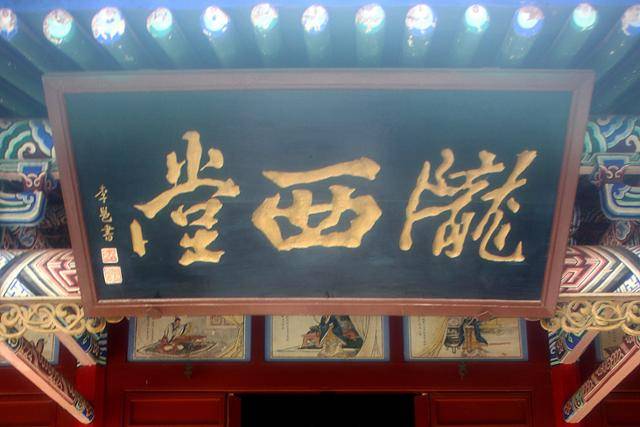 隴西堂
李鬼書